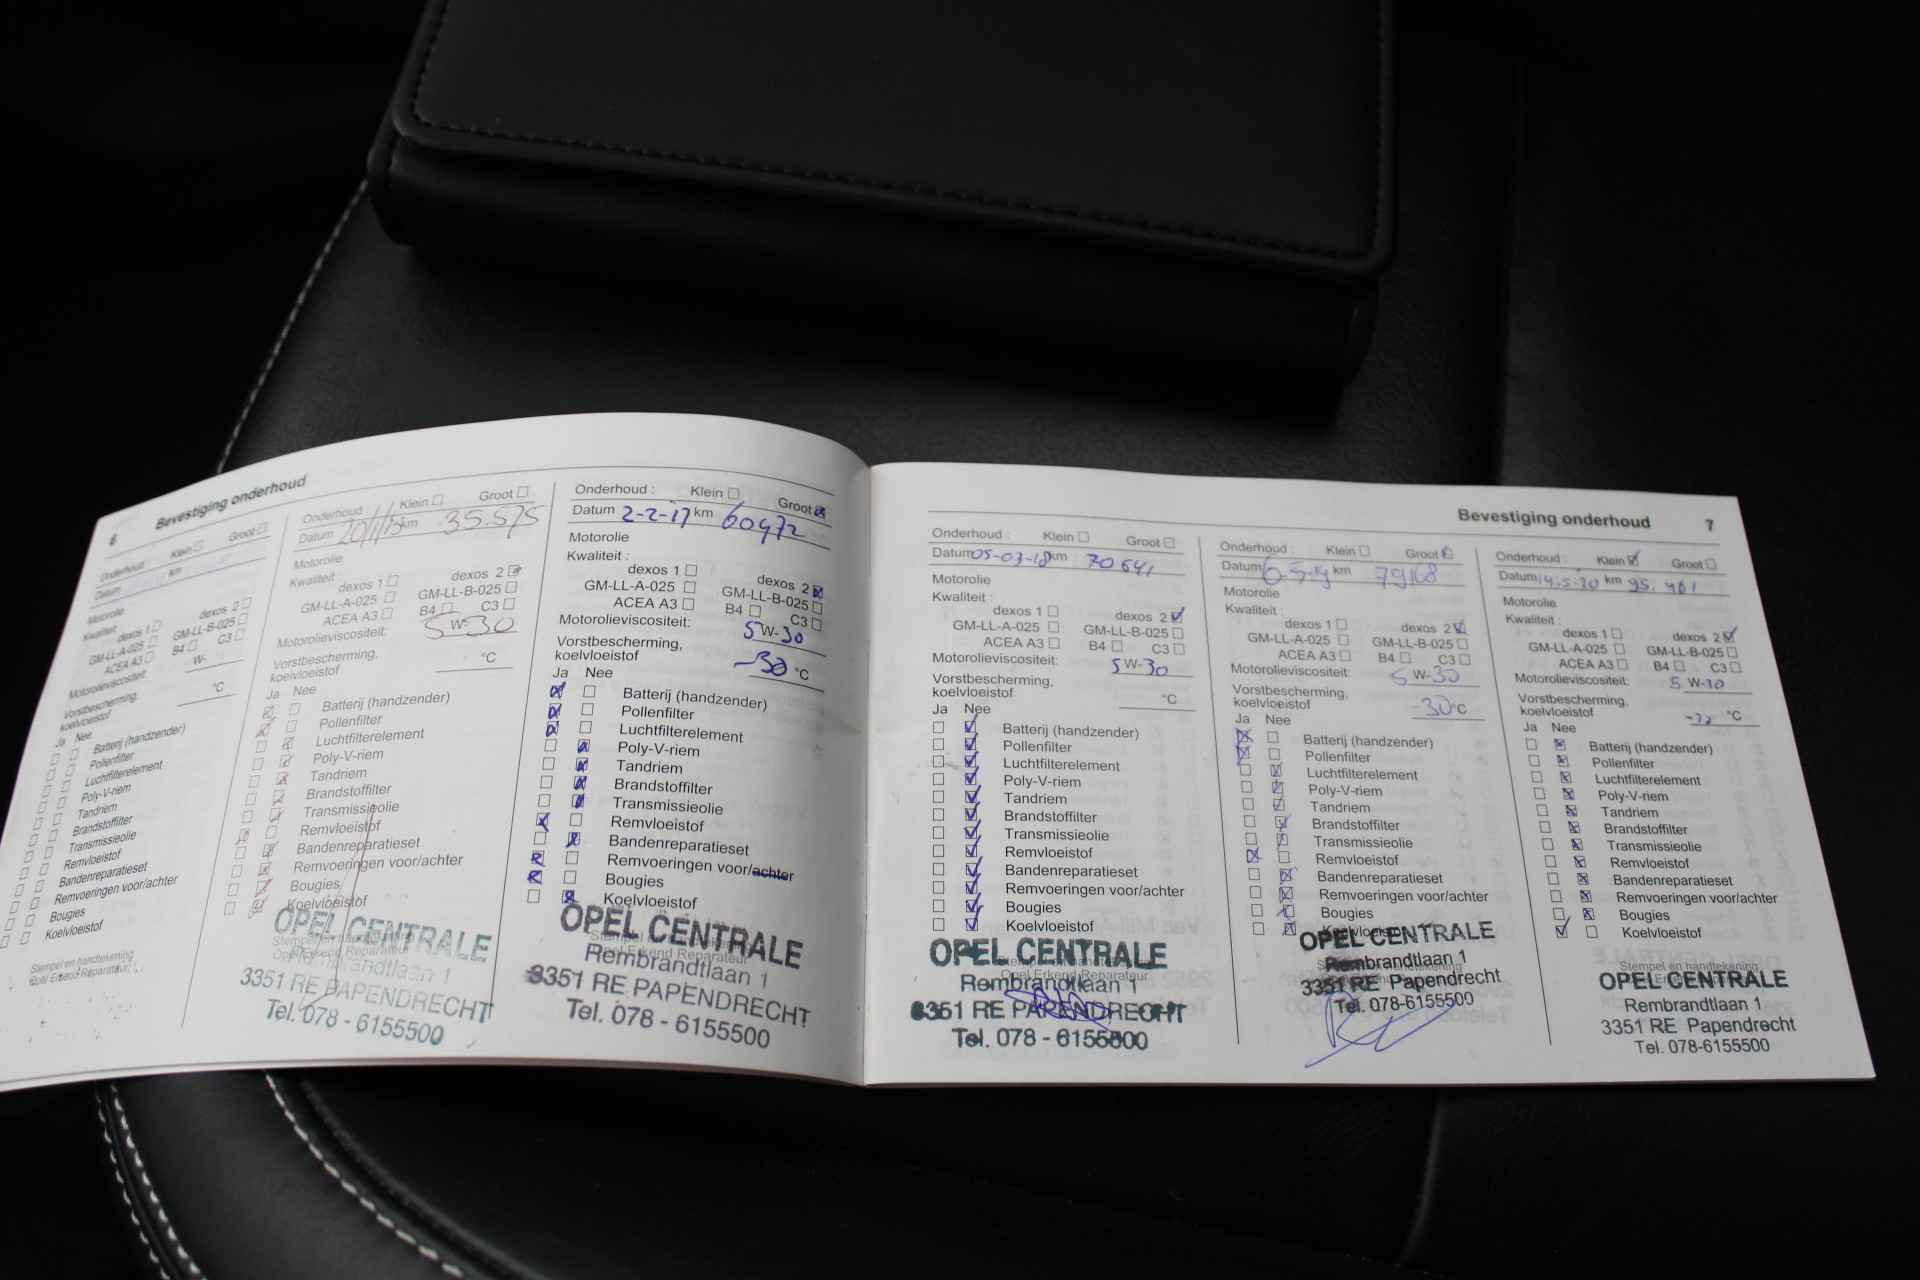 6 Bevestiging onderhoud
Onderhoud: Klein Groot
Datum km
Motorolie
Kwaliteit:
dexos 1 dexos 2
GM-LL-A-025 GM-LL-B-025
ACEA A3 B4 C3
Motorolieviscositeit: W-
Vorstbescherming,
koelvloeistof °C
Ja Nee
Batterij (handzender)
Pollenfilter
Luchtfilterelement
Poly-V-riem
Tandriem
Brandstoffilter
Transmissieolie
Remvloeistof
Bandenreparatieset
Remvoeringen voor/achter
Bougies
Koelvloeistof
Stempel en handtekening
Opel Erkend Reparateur
Onderhoud : Klein Groot
Datum km 35.575
Motorolie
Kwaliteit :
dexos 1 dexos 2
GM-LL-A-025 GM-LL-B-025
ACEA A3 B4 C3
Motorolieviscositeit: 5 W-30
Vorstbescherming,
koelvloeistof °C
Ja Nee
Batterij (handzender)
Pollenfilter
Luchtfilterelement
Poly-V-riem
Tandriem
Brandstoffilter
Transmissieolie
Remvloeistof
Bandenreparatieset
Remvoeringen voor/achter
Bougies
Koelvloeistof
OPEL CENTRALE
Stempel en handtekening
Rembrandtlaan 1
3351 RE PAPENDRECHT
Tel. 078 - 6155500
Onderhoud : Klein Groot
Datum 2-2-17 km 60472
Motorolie
Kwaliteit :
dexos 1 dexos 2
GM-LL-A-025 GM-LL-B-025
ACEA A3 B4 C3
Motorolieviscositeit: 5 W-30
Vorstbescherming,
koelvloeistof -30 °C
Ja Nee
Batterij (handzender)
Pollenfilter
Luchtfilterelement
Poly-V-riem
Tandriem
Brandstoffilter
Transmissieolie
Remvloeistof
Bandenreparatieset
Remvoeringen voor/achter
Bougies
Koelvloeistof
OPEL CENTRALE
Stempel en handtekening
Opel Erkend Reparateur
Rembrandtlaan 1
3351 RE PAPENDRECHT
Tel. 078 - 6155500
Bevestiging onderhoud 7
Onderhoud : Klein Groot
Datum 05-03-18 km 70641
Motorolie
Kwaliteit :
dexos 1 dexos 2
GM-LL-A-025 GM-LL-B-025
ACEA A3 B4 C3
Motorolieviscositeit: 5 W-30
Vorstbescherming,
koelvloeistof °C
Ja Nee
Batterij (handzender)
Pollenfilter
Luchtfilterelement
Poly-V-riem
Tandriem
Brandstoffilter
Transmissieolie
Remvloeistof
Bandenreparatieset
Remvoeringen voor/achter
Bougies
Koelvloeistof
OPEL CENTRALE
Stempel en handtekening
Opel Erkend Reparateur
Rembrandtlaan 1
3351 RE PAPENDRECHT
Tel. 078 - 6155500
Onderhoud : Klein Groot
Datum 6-5-19 km 79168
Motorolie
Kwaliteit :
dexos 1 dexos 2
GM-LL-A-025 GM-LL-B-025
ACEA A3 B4 C3
Motorolieviscositeit: 5 W-30
Vorstbescherming,
koelvloeistof -30 °C
Ja Nee
Batterij (handzender)
Pollenfilter
Luchtfilterelement
Poly-V-riem
Tandriem
Brandstoffilter
Transmissieolie
Remvloeistof
Bandenreparatieset
Remvoeringen voor/achter
Bougies
Koelvloeistof
OPEL CENTRALE
Rembrandtlaan 1
3351 RE Papendrecht
Tel. 078-6155500
Onderhoud : Klein Groot
Datum 14-5-20 km 95.461
Motorolie
Kwaliteit :
dexos 1 dexos 2
GM-LL-A-025 GM-LL-B-025
ACEA A3 B4 C3
Motorolieviscositeit: 5 W-30
Vorstbescherming,
koelvloeistof °C
Ja Nee
Batterij (handzender)
Pollenfilter
Luchtfilterelement
Poly-V-riem
Tandriem
Brandstoffilter
Transmissieolie
Remvloeistof
Bandenreparatieset
Remvoeringen voor/achter
Bougies
Koelvloeistof
Stempel en handtekening
OPEL CENTRALE
Rembrandtlaan 1
3351 RE Papendrecht
Tel. 078-6155500